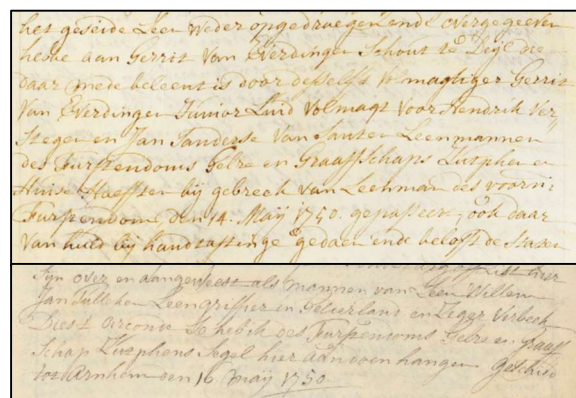 het geseide Leen weder opgedraegen ende overgegeeven
hebbe aan Gerrit van Everdingen Schout te Deijl die
daar mede beleent is door deszelfs volmagtiger Gerrit
van Everdingen Junior Luid volmagt voor Hendrik Ver
Steegen en Jan Tanderse van Santen Leenmannen
des Furstendoms Gelre en Graafschaps Zutphen en
Huise Haeften bij gebreek van Leenman des voorn:
Furstendom, den 14. Maij 1750. gepasseert, ook daar
van huld bij handtastinge gedaen ende belooft de
sijn over en aangeweest als mannen van Leen Willem
Jan Leengriffier in Gelderland en Verbeek
Diest Oirconde So heb ik des Furstendoms Gelre en Graaff
Schap Zutphens Segel hier aan doen hangen Geschied
tot Arnhem den 16 Maij 1750